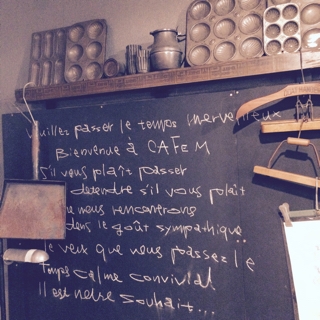 veuillez passer le temps merveilleux
Bienvenue à CAFE M
S'il vous plaît passer
detendre s'il vous plaît
ne nous rencontrons
dens le goût sympathique
Je veux que vous passez le
temps calme convivial
Il est notre souhait...